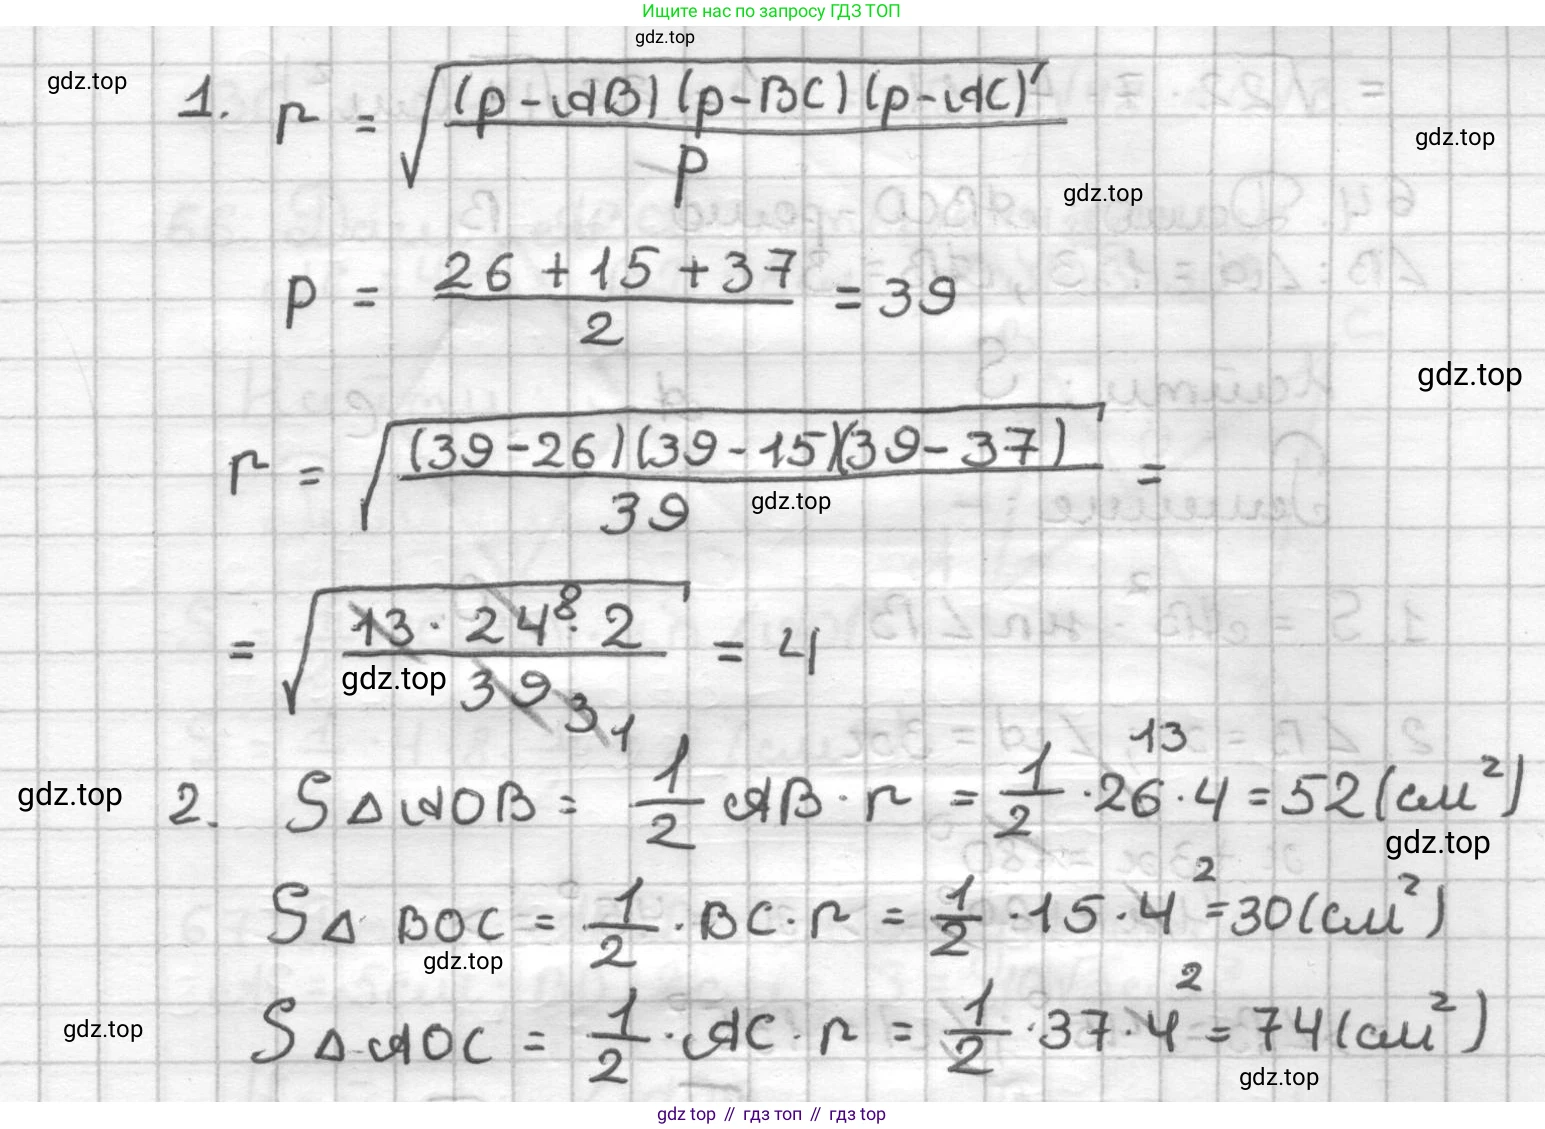 Ищите нас по запросу ГДЗ ТОП
gdz.top
gdz.top
1. r = √((p-AB)(p-BC)(p-AC)/p)
gdz.top
gdz.top
p = (26+15+37)/2 = 39
gdz.top
r = √((39-26)(39-15)(39-37)/39) =
gdz.top
= √(13·24 8·2/39 3 1) = 4
gdz.top
gdz.top
2. S△AOB = 1/2 AB·r = 1/2·26 13·4 = 52(см²)
gdz.top
S△BOC = 1/2·BC·r = 1/2·15·4 2 = 30(см²)
gdz.top
S△AOC = 1/2·AC·r = 1/2·37·4 2 = 74(см²)
gdz.top
gdz.top
gdz top // гдз топ // гдз top